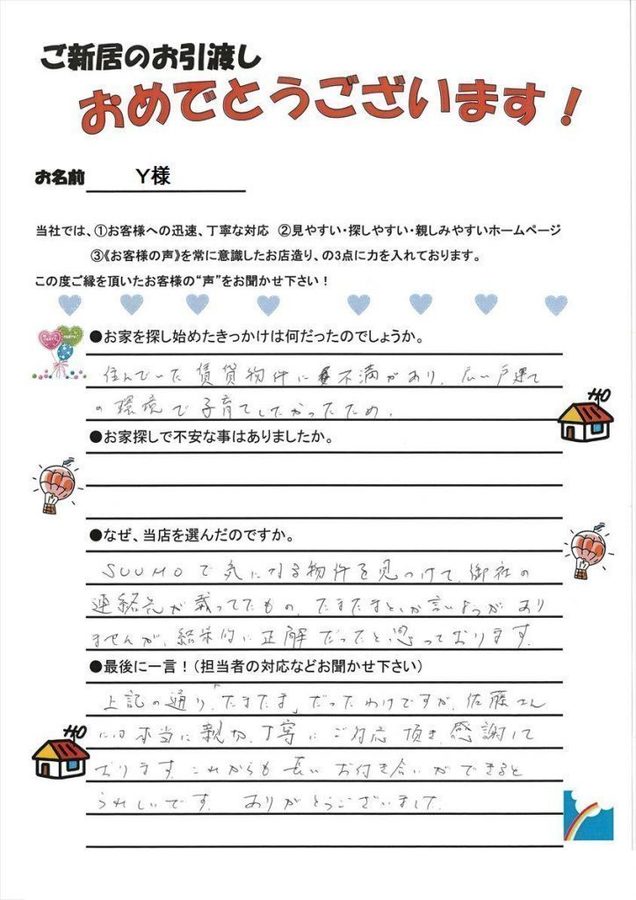 ご新居のお引渡し
おめでとうございます！
お名前 Y様
当社では、①お客様への迅速、丁寧な対応 ②見やすい・探しやすい・親しみやすいホームページ
③《お客様の声》を常に意識したお店造り、の3点に力を入れております。
この度ご縁を頂いたお客様の“声”をお聞かせ下さい！
●お家を探し始めたきっかけは何だったのでしょうか。
住んでいた賃貸物件に不満があり、広い戸建て
の環境で子育てしたかったため。
●お家探しで不安な事はありましたか。
●なぜ、当店を選んだのですか。
SUUMOで気になる物件を見つけて、御社の
連絡先が載ってたもの。たまたまとしか言いようがあり
ませんが、結果的に正解だったと思っております。
●最後に一言！（担当者の対応などお聞かせ下さい）
上記の通り、「たまたま」だったわけですが、佐藤さん
には本当に親切、丁寧にご対応頂き、感謝して
おります。これからも長いお付き合いができると
うれしいです。ありがとうございました。